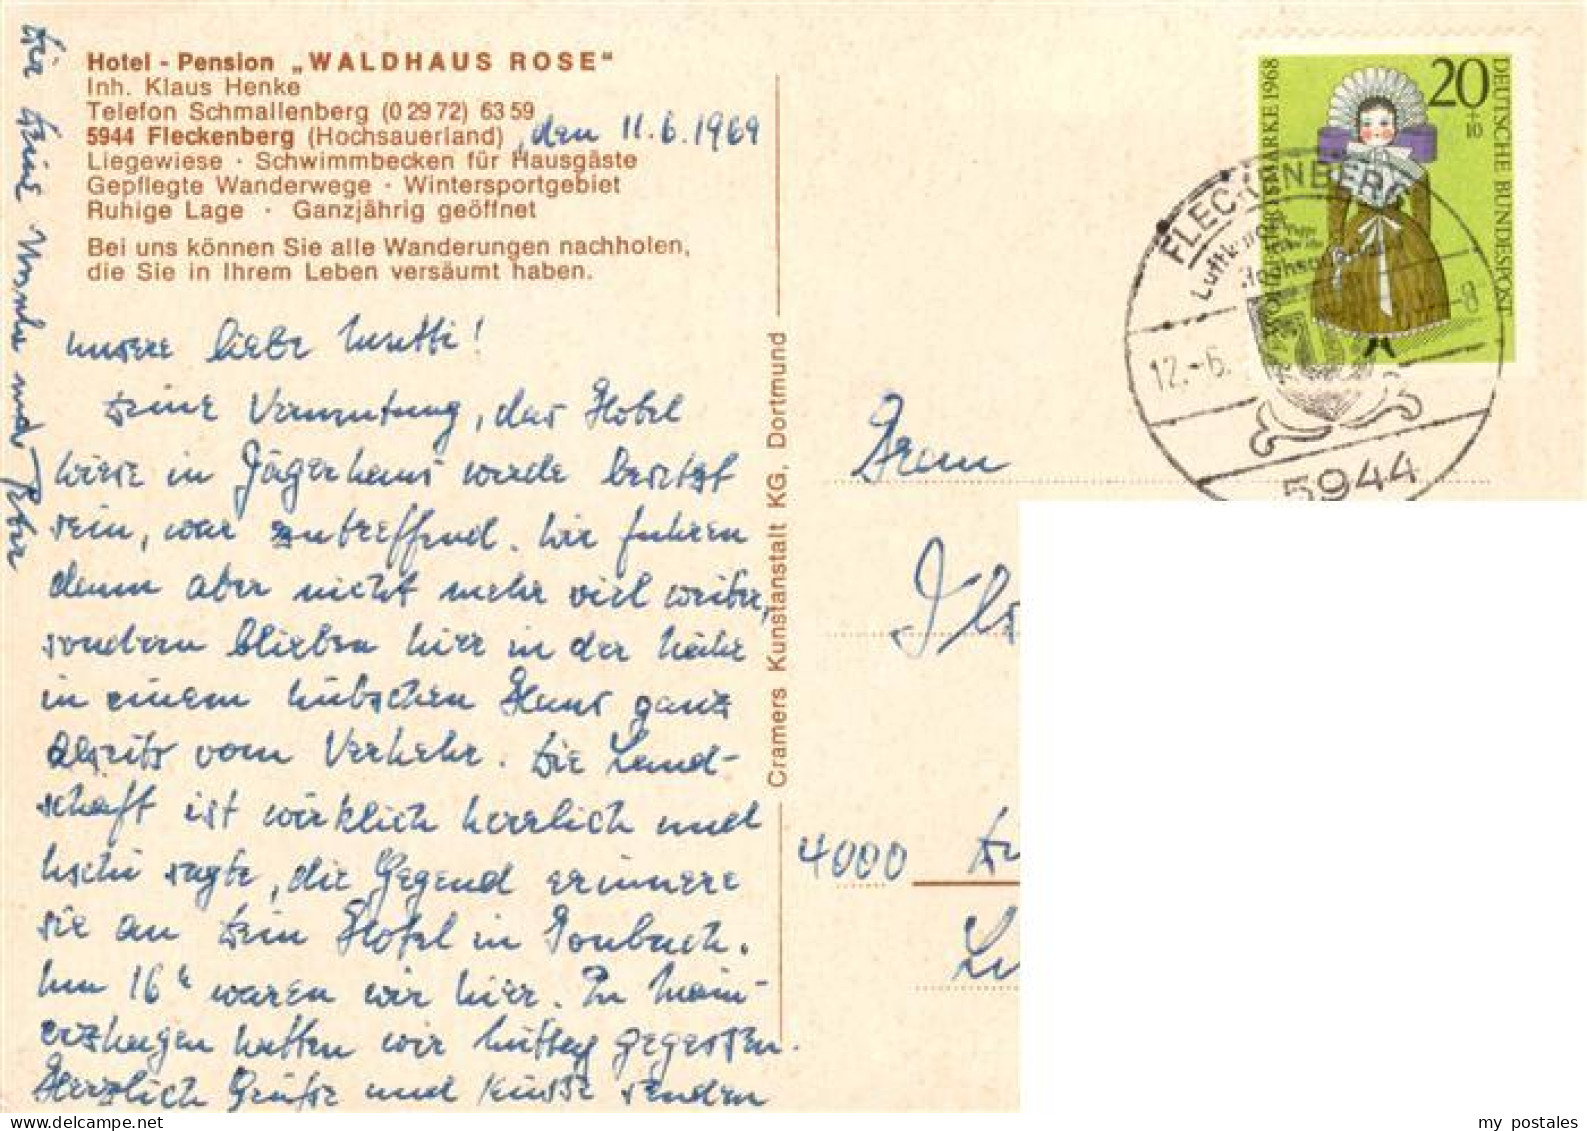 Hotel - Pension „WALDHAUS ROSE“
Inh. Klaus Henke
Telefon Schmallenberg (0 29 72) 63 59
5944 Fleckenberg (Hochsauerland), den 11.6.1969
Liegewiese · Schwimmbecken für Hausgäste
Gepflegte Wanderwege · Wintersportgebiet
Ruhige Lage · Ganzjährig geöffnet
Bei uns können Sie alle Wanderungen nachholen,
die Sie in Ihrem Leben versäumt haben.
Unsere liebe Mutti!
Deine Vermutung, das Hotel
Wiese in Jägerhaus werde besetzt
sein, war zutreffend. Wir fuhren
dann aber nicht mehr viel weiter,
sondern blieben hier in der Nähe
in einem hübschen Haus ganz
abseits vom Verkehr. Die Land-
schaft ist wirklich herrlich und
Uschi sagte, die Gegend erinnere
sie an Dein Hotel in Tonbach.
Um 16h waren wir hier. In Mein-
erzhagen hatten wir Mittag gegessen.
Herzlich Grüße und Küsse senden
Dir Deine Ursula und Peter
Cramers Kunstanstalt KG, Dortmund
20
+10
DEUTSCHE BUNDESPOST
WOHLFAHRTSMARKE 1968
FLECKENBERG
Luftkurort
Hochsauerland
12.-6.
-8
5944
Frau
Ils
4000 Dü
my postales